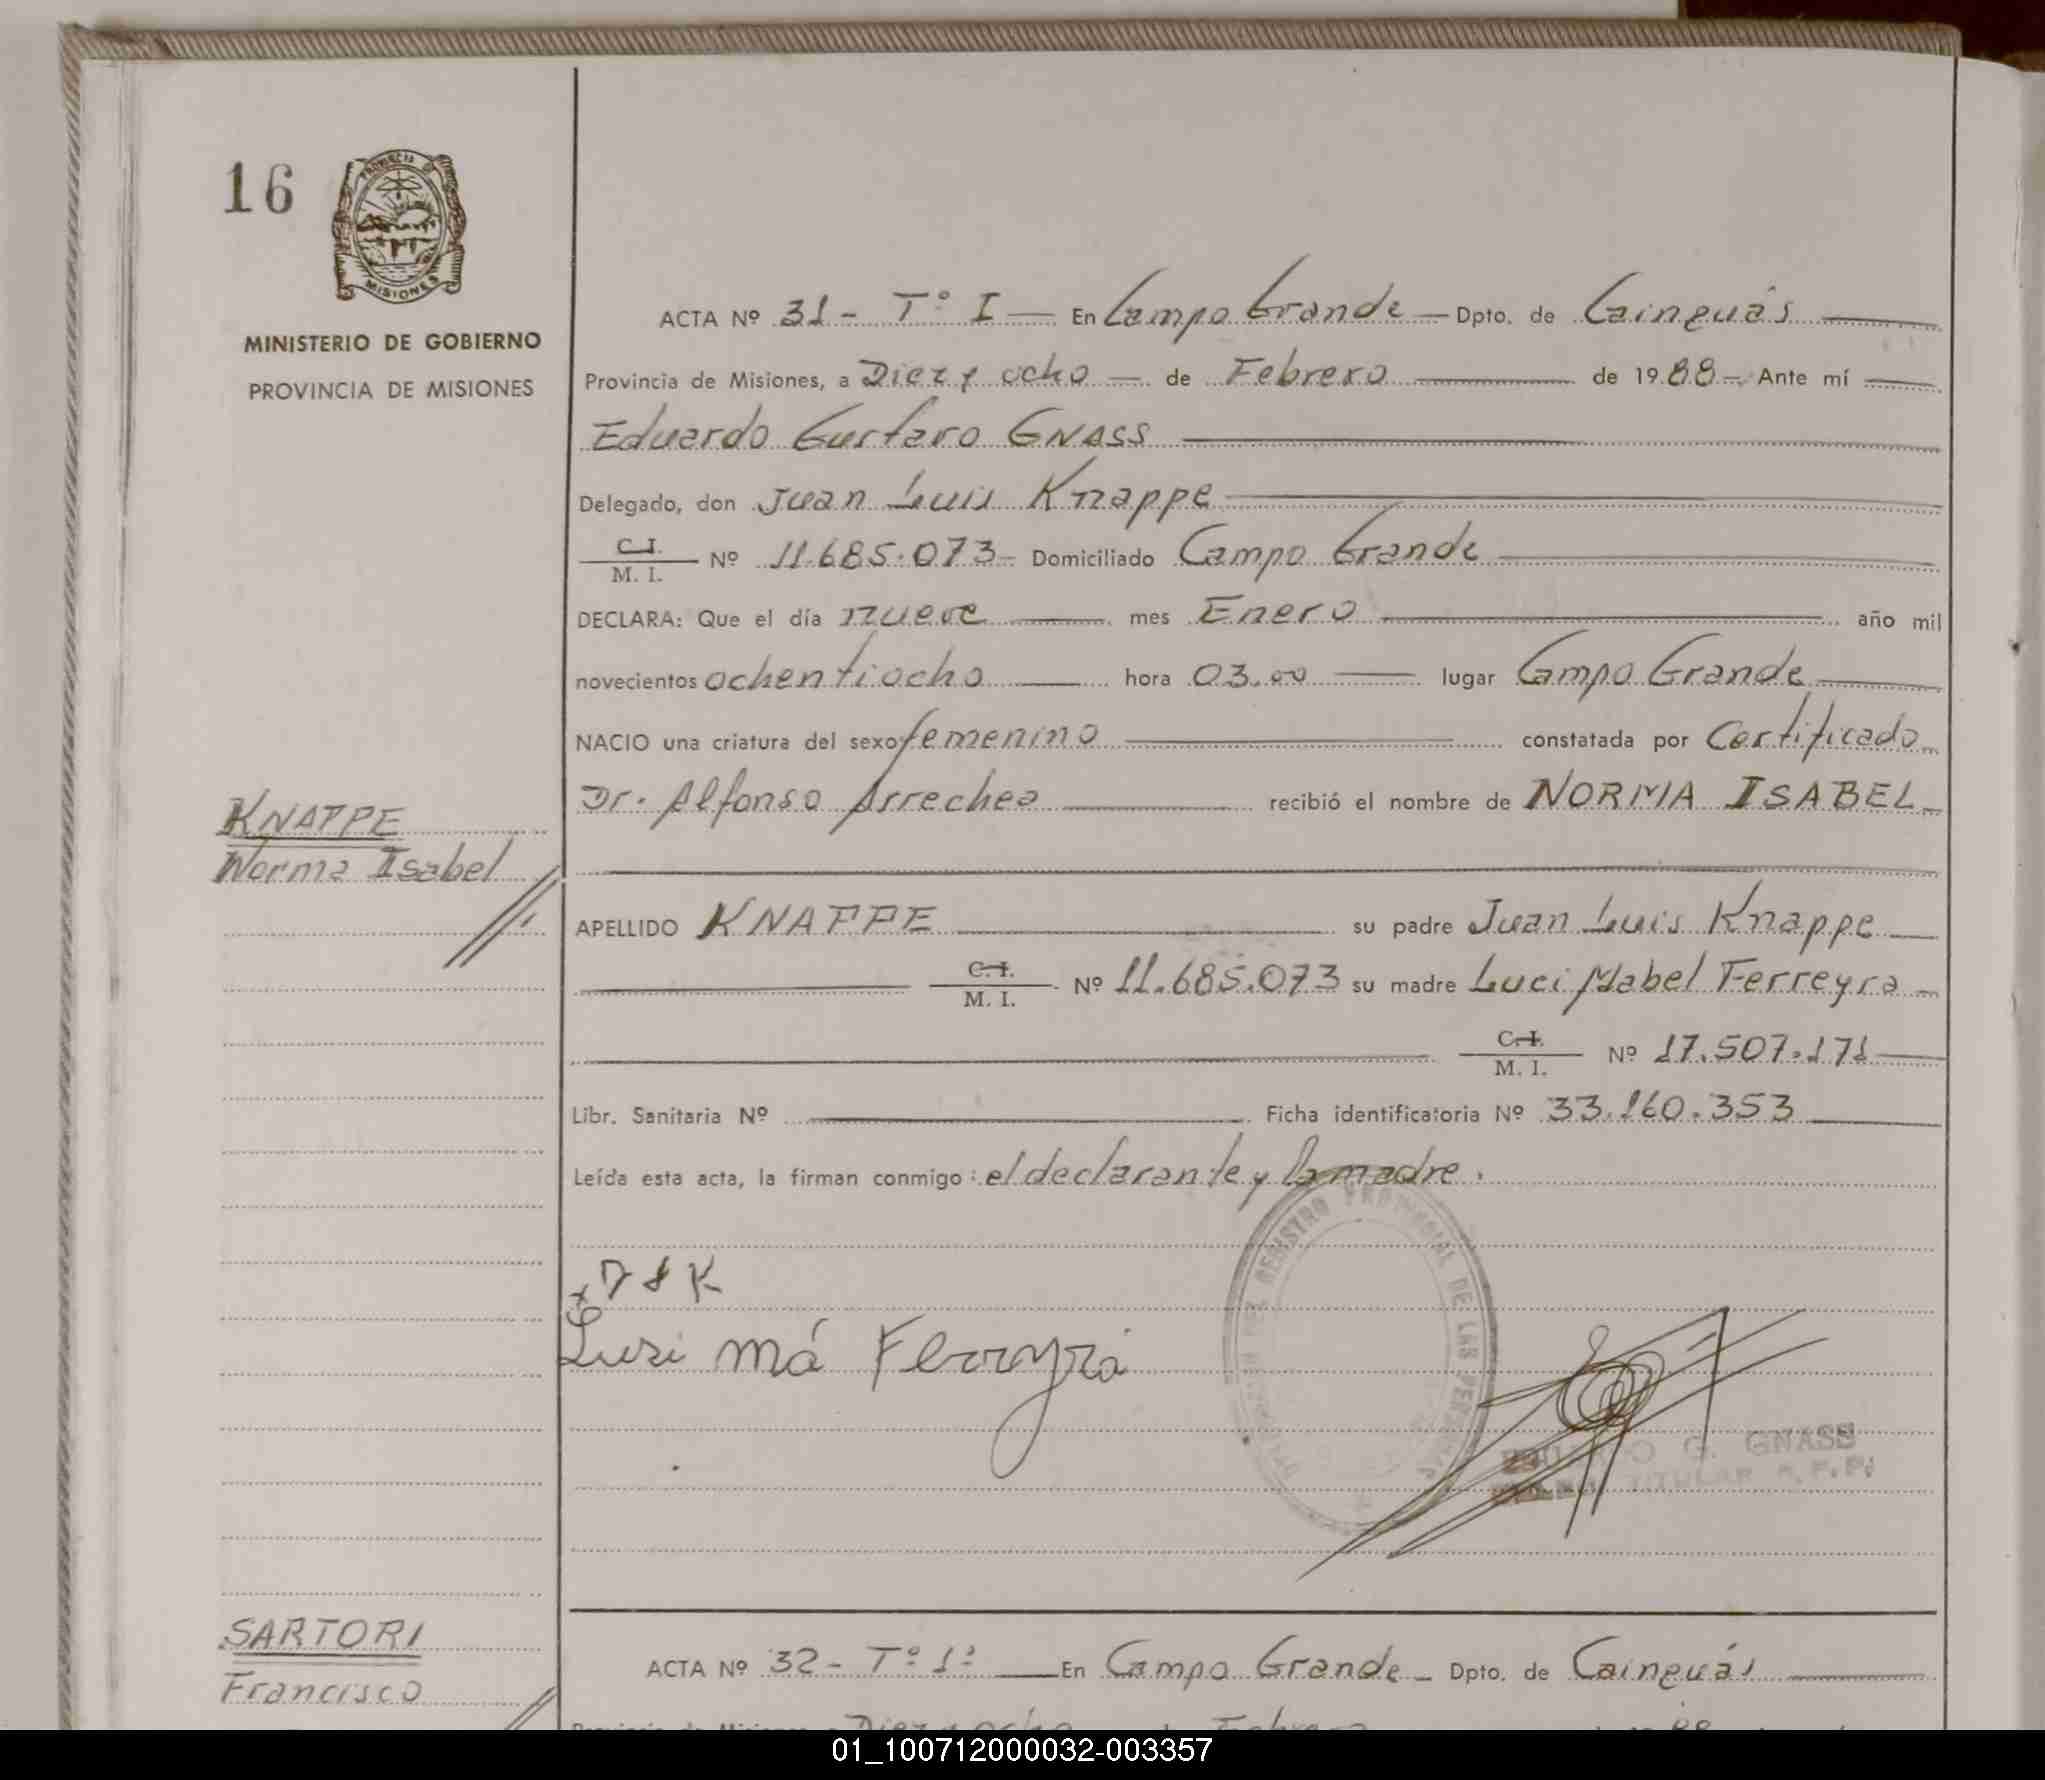 16
PROVINCIA DE
MISIONES
MINISTERIO DE GOBIERNO
PROVINCIA DE MISIONES
ACTA Nº 31 - Tº I — En Campo Grande — Dpto. de Cainguás
Provincia de Misiones, a Diez y ocho — de Febrero de 1988 - Ante mí
Eduardo Gustavo GNASS
Delegado, don Juan Luis Knappe
C. I. / M. I. Nº 11.685.073 - Domiciliado Campo Grande
DECLARA: Que el día nueve mes Enero año mil
novecientos ochentiocho hora 03.00 lugar Campo Grande
NACIO una criatura del sexo femenino constatada por Certificado
Dr. Alfonso Arrechea recibió el nombre de NORMA ISABEL
KNAPPE
Norma Isabel
APELLIDO KNAPPE su padre Juan Luis Knappe
C. I. / M. I. Nº 11.685.073 su madre Luci Mabel Ferreyra
C. I. / M. I. Nº 17.507.171
Libr. Sanitaria Nº Ficha identificatoria Nº 33.160.353
Leída esta acta, la firman conmigo: el declarante y la madre.
REGISTRO PROVINCIAL DE LAS PERSONAS
Luzi má Ferreyra
G. GNASS
TITULAR
SARTORI
Francisco
ACTA Nº 32 - Tº 1º En Campo Grande - Dpto. de Cainguás
Provincia de Misiones, a Diez y ocho de Febrero 88
01_100712000032-003357